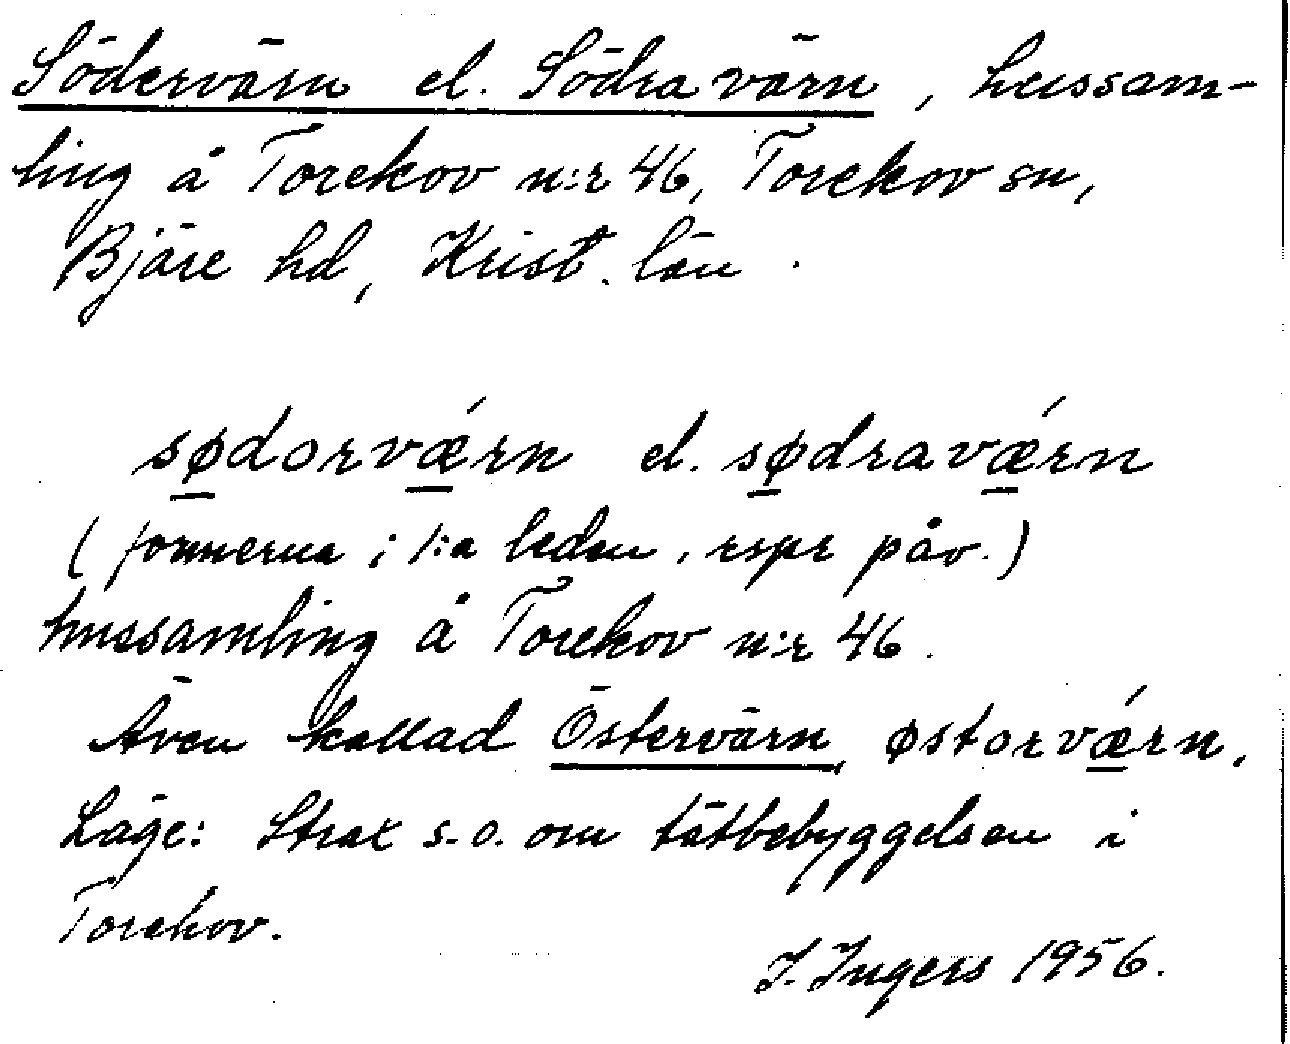 Södervärn el. Södra värn, hussam-
ling å Torekov n:r 46, Torekov sn,
Bjäre hd, Krist. län.
sødorvǽrn el. sødravǽrn
(formerna i 1:a leden, rspr påv.)
hussamling å Torekov n:r 46.
Även kallad Östervärn, østorvǽrn.
Läge: Strax s.o. om tätbebyggelsen i
Torekov.
I. Ingers 1956.